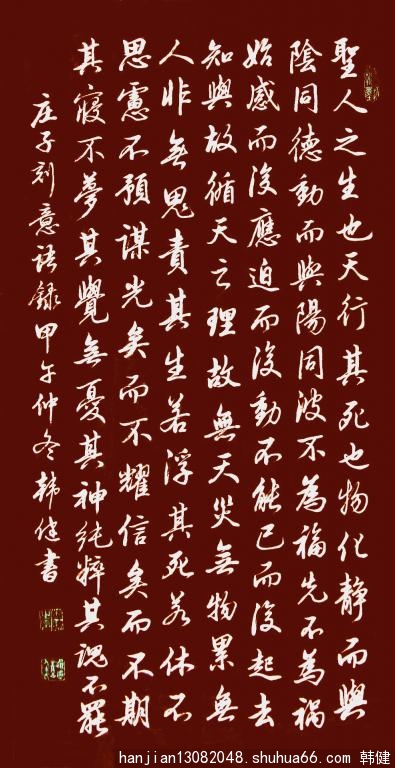 聖人之生也天行其死也物化静而與
陰同德動而與陽同波不為福先不為禍
始感而後應迫而後動不能已而後起去
知與故循天之理故無天災無物累無
人非無鬼責其生若浮其死若休不
思慮不預謀光矣而不耀信矣而不期
其寢不夢其覺無憂其神純粹其魂不罷
庄子刻意语錄甲午仲冬韩健書
hanjian13082048.shuhua66.com 韩健